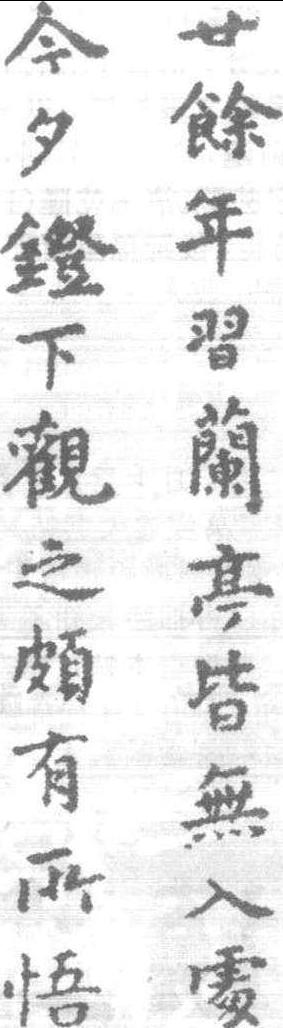 廿餘年習蘭亭皆無入處
今夕鐙下觀之頗有所悟